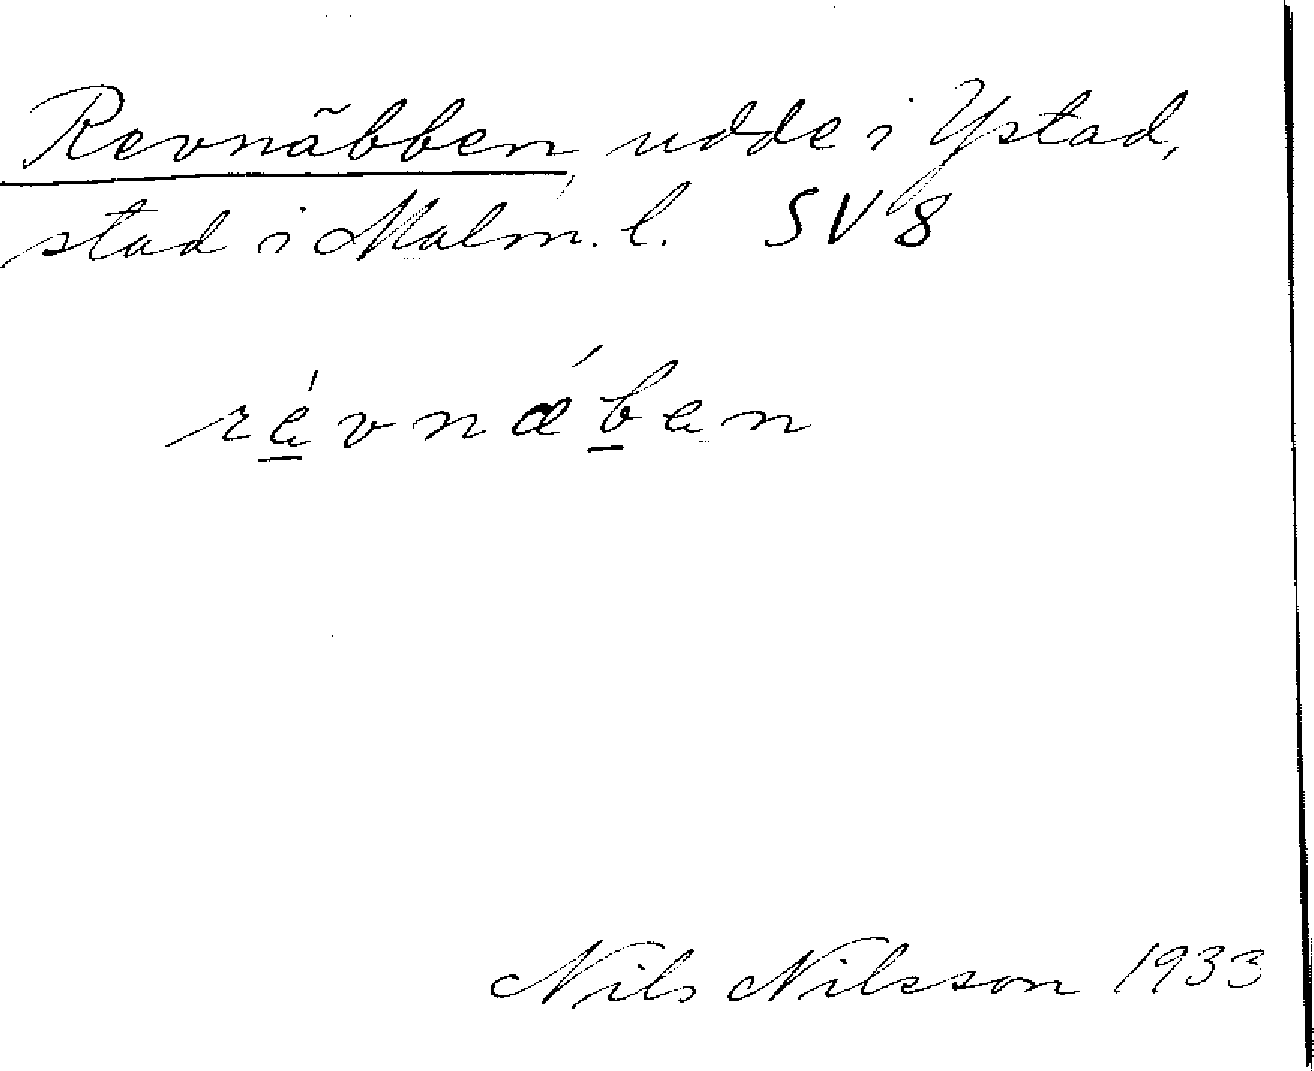 Revnäbben, udde i Ystad,
stad i Malm. l. SV 8
révnǽben
Nils Nilsson 1933